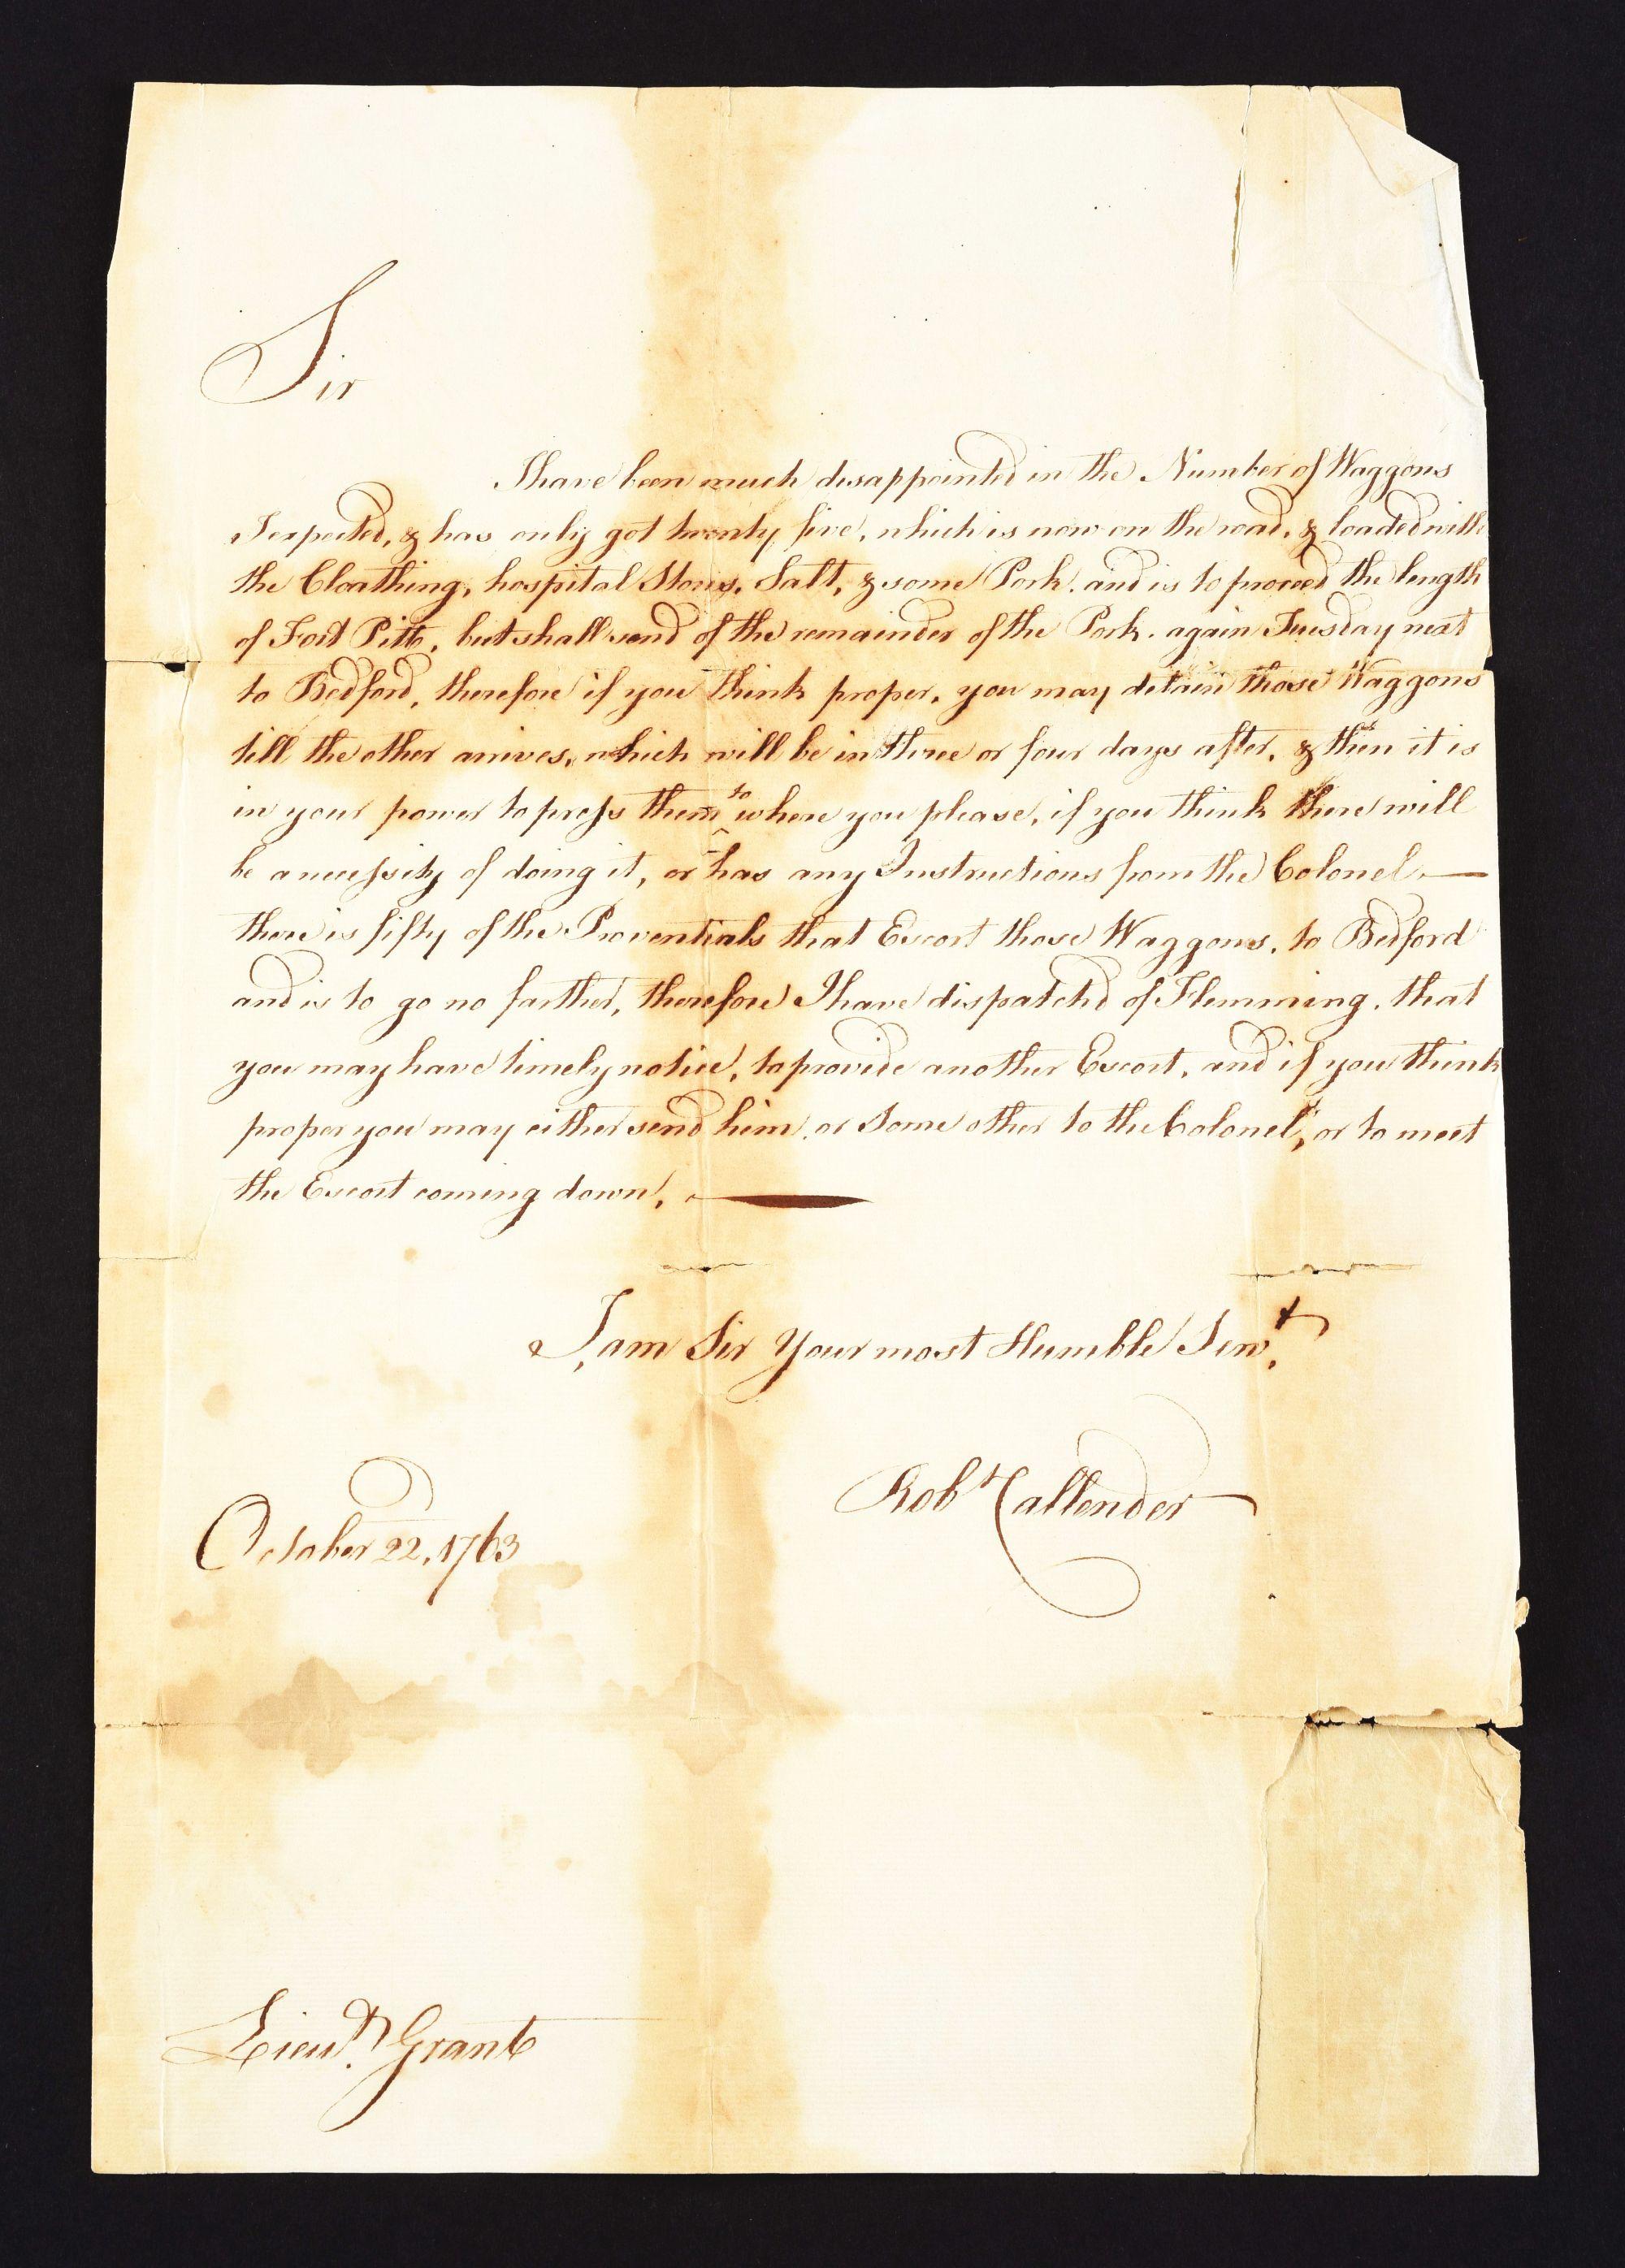 Sir
I have been much disappointed in the Number of Waggons
I expected, & has only got twenty five, which is now on the road, & loaded with
the Cloathing, hospital Stores, Salt, & some Pork. and is to proceed the length
of Fort Pitt, but shall send of the remainder of the Pork. again Tuesday next
to Bedford, therefore if you think proper, you may detain those Waggons
till the other arrives, which will be in three or four days after, & then it is
in your power to press them to where you please, if you think there will
be a necessity of doing it, or has any Instructions from the Colonel —
there is fifty of the Proventials that Escort those Waggons, to Bedford
and is to go no farther, therefore I have dispatchd of Flemming, that
you may have timely notice, to provide another Escort, and if you think
proper you may either send him, or some other to the Colonel, or to meet
the Escort coming down, —
I, am Sir Your most Humble Servt.
Robt Callender
October 22, 1763
Lieut. Grant